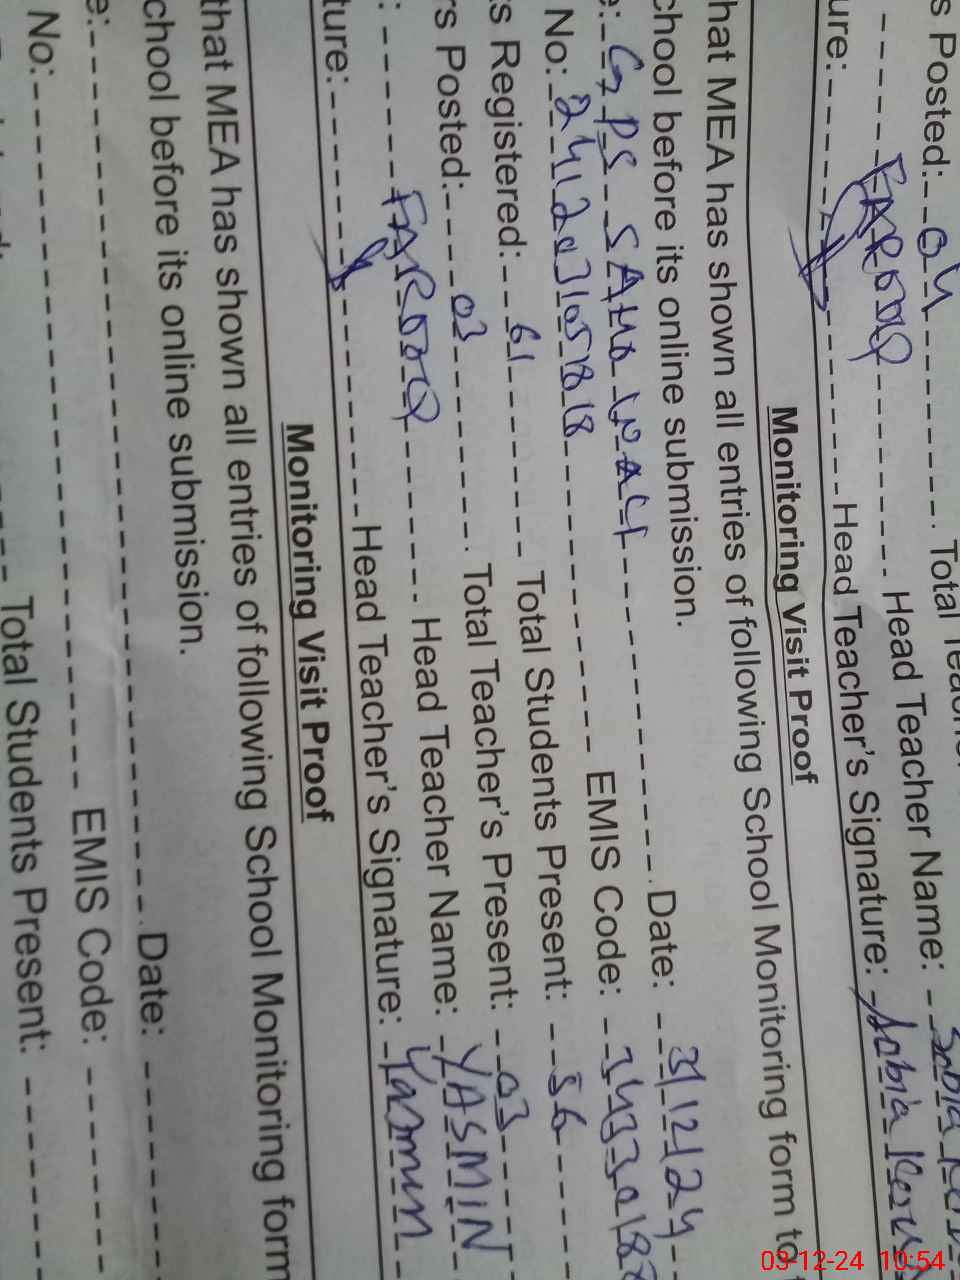 s Posted: 04 Total
FAROOQ Head Teacher Name: Sobia
ure: Head Teacher's Signature: Sobia
Monitoring Visit Proof
hat MEA has shown all entries of following School Monitoring form to
chool before its online submission.
e: GPS Date: 3/12/24
No: EMIS Code:
s Registered: 61 Total Students Present: 56
rs Posted: 03 Total Teacher's Present: 03
: FAROOQ Head Teacher Name: YASMIN
ture: Head Teacher's Signature: Yasmin
Monitoring Visit Proof
that MEA has shown all entries of following School Monitoring form
chool before its online submission.
e: Date:
No: EMIS Code:
Total Students Present:
03-12-24 10:54